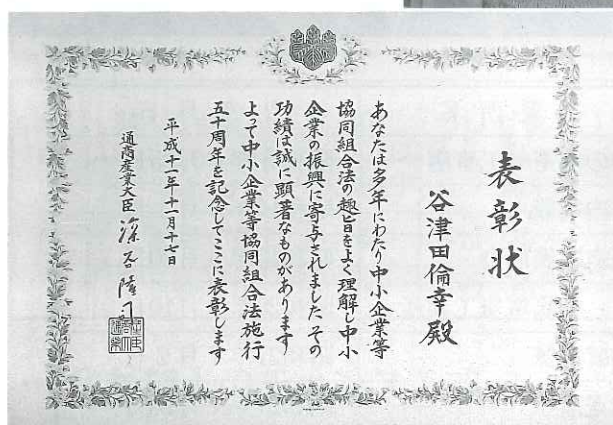 表彰状
谷津田倫幸殿
あなたは多年にわたり中小企業等
協同組合法の趣旨をよく理解し中小
企業の振興に寄与されました その
功績は誠に顕著なものがあります
よって中小企業等協同組合法施行
五十周年を記念してここに表彰します
平成十一年十一月十七日
通商産業大臣 深谷隆司